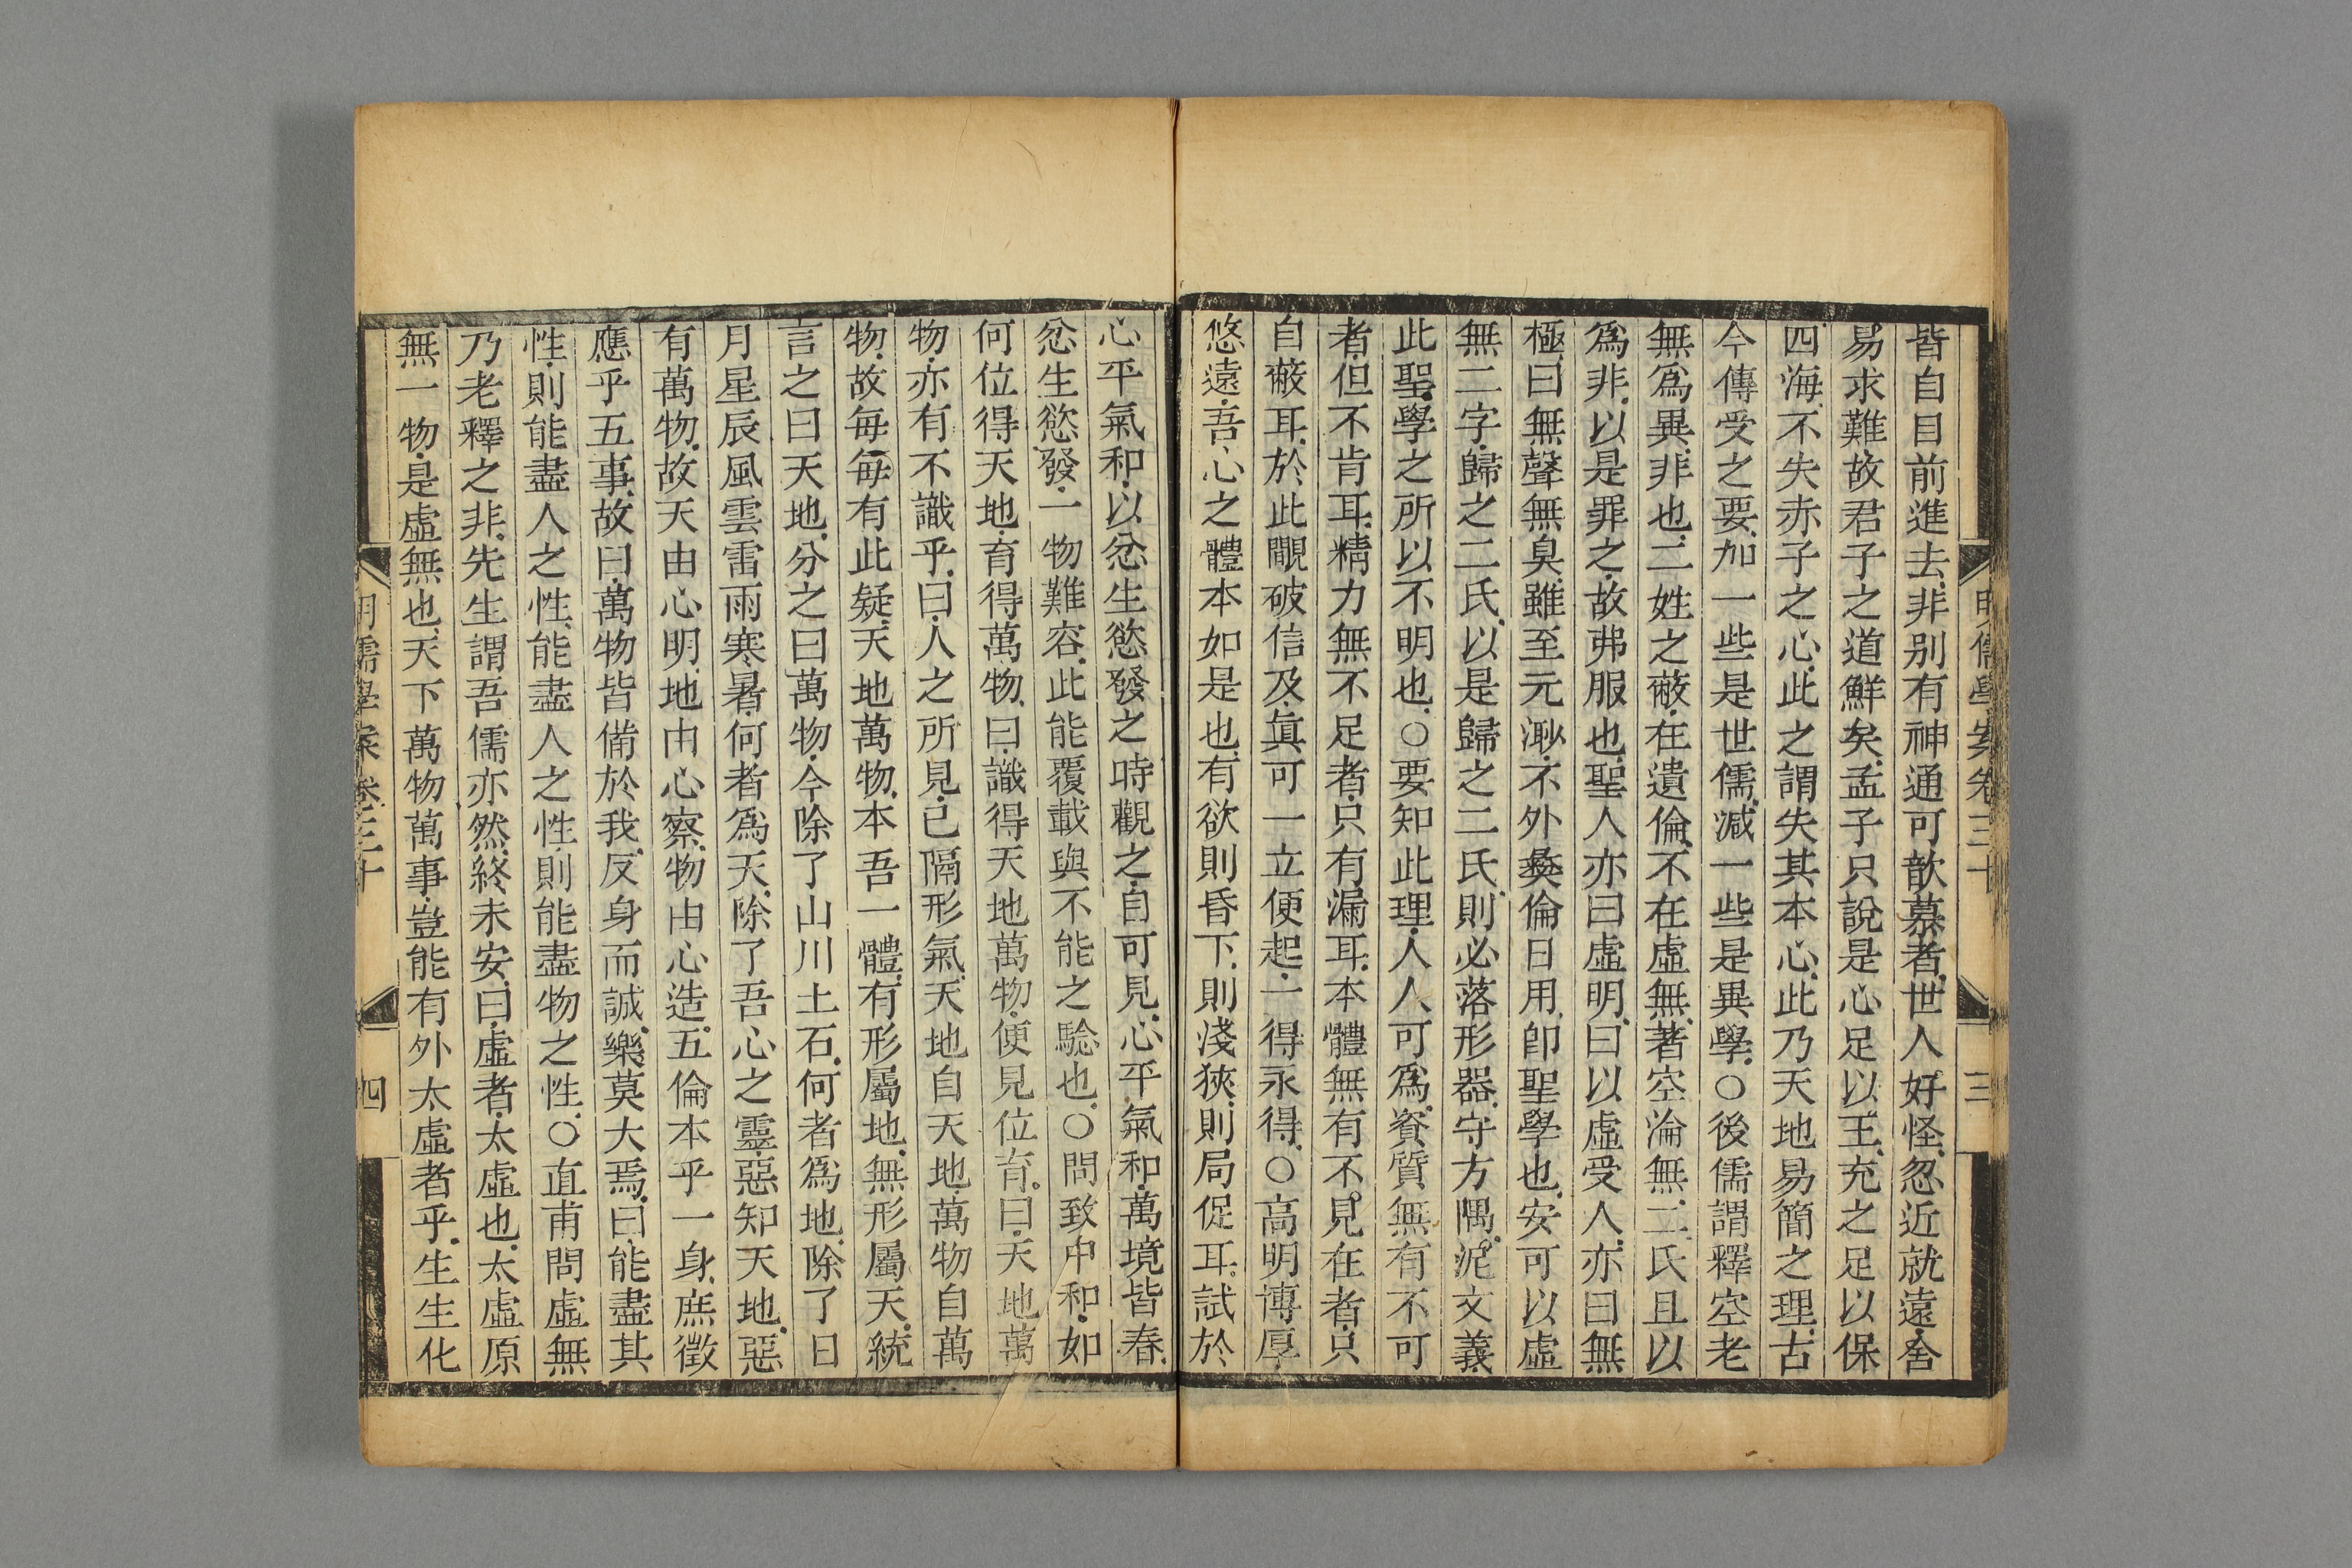 明儒學案卷三十 三
皆自目前進去非别有神通可歆慕者世人好怪忽近就遠舍
易求難故君子之道鮮矣孟子只說是心足以王充之足以保
四海不失赤子之心此之謂失其本心此乃天地易簡之理古
今傳受之要加一些是世儒減一些是異學○後儒謂釋空老
無爲異非也二姓之蔽在遺倫不在虛無著空淪無二氏且以
爲非以是罪之故弗服也聖人亦曰虛明曰以虛受人亦曰無
極曰無聲無臭雖至元渺不外彝倫日用卽聖學也安可以虛
無二字歸之二氏以是歸之二氏則必落形器守方隅泥文義
此聖學之所以不明也○要知此理人人可爲資質無有不可
者但不肯耳精力無不足者只有漏耳本體無有不見在者只
自蔽耳於此覷破信及眞可一立便起一得永得○高明博厚
悠遠吾心之體本如是也有欲則昏下則淺狹則局促耳試於
心平氣和以忿生慾發之時觀之自可見心平氣和萬境皆春
忿生慾發一物難容此能覆載與不能之騐也○問致中和如
何位得天地育得萬物曰識得天地萬物便見位育曰天地萬
物亦有不識乎曰人之所見已隔形氣天地自天地萬物自萬
物故每每有此疑天地萬物本吾一體有形屬地無形屬天統
言之曰天地分之曰萬物今除了山川土石何者爲地除了日
月星辰風雲雷雨寒暑何者爲天除了吾心之靈惡知天地惡
有萬物故天由心明地由心察物由心造五倫本乎一身庶徵
應乎五事故曰萬物皆備於我反身而誠樂莫大焉曰能盡其
性則能盡人之性能盡人之性則能盡物之性○直甫問虛無
乃老釋之非先生謂吾儒亦然終未安曰虛者太虛也太虛原
無一物是虛無也天下萬物萬事豈能有外太虛者乎生生化
明儒學案卷三十 四